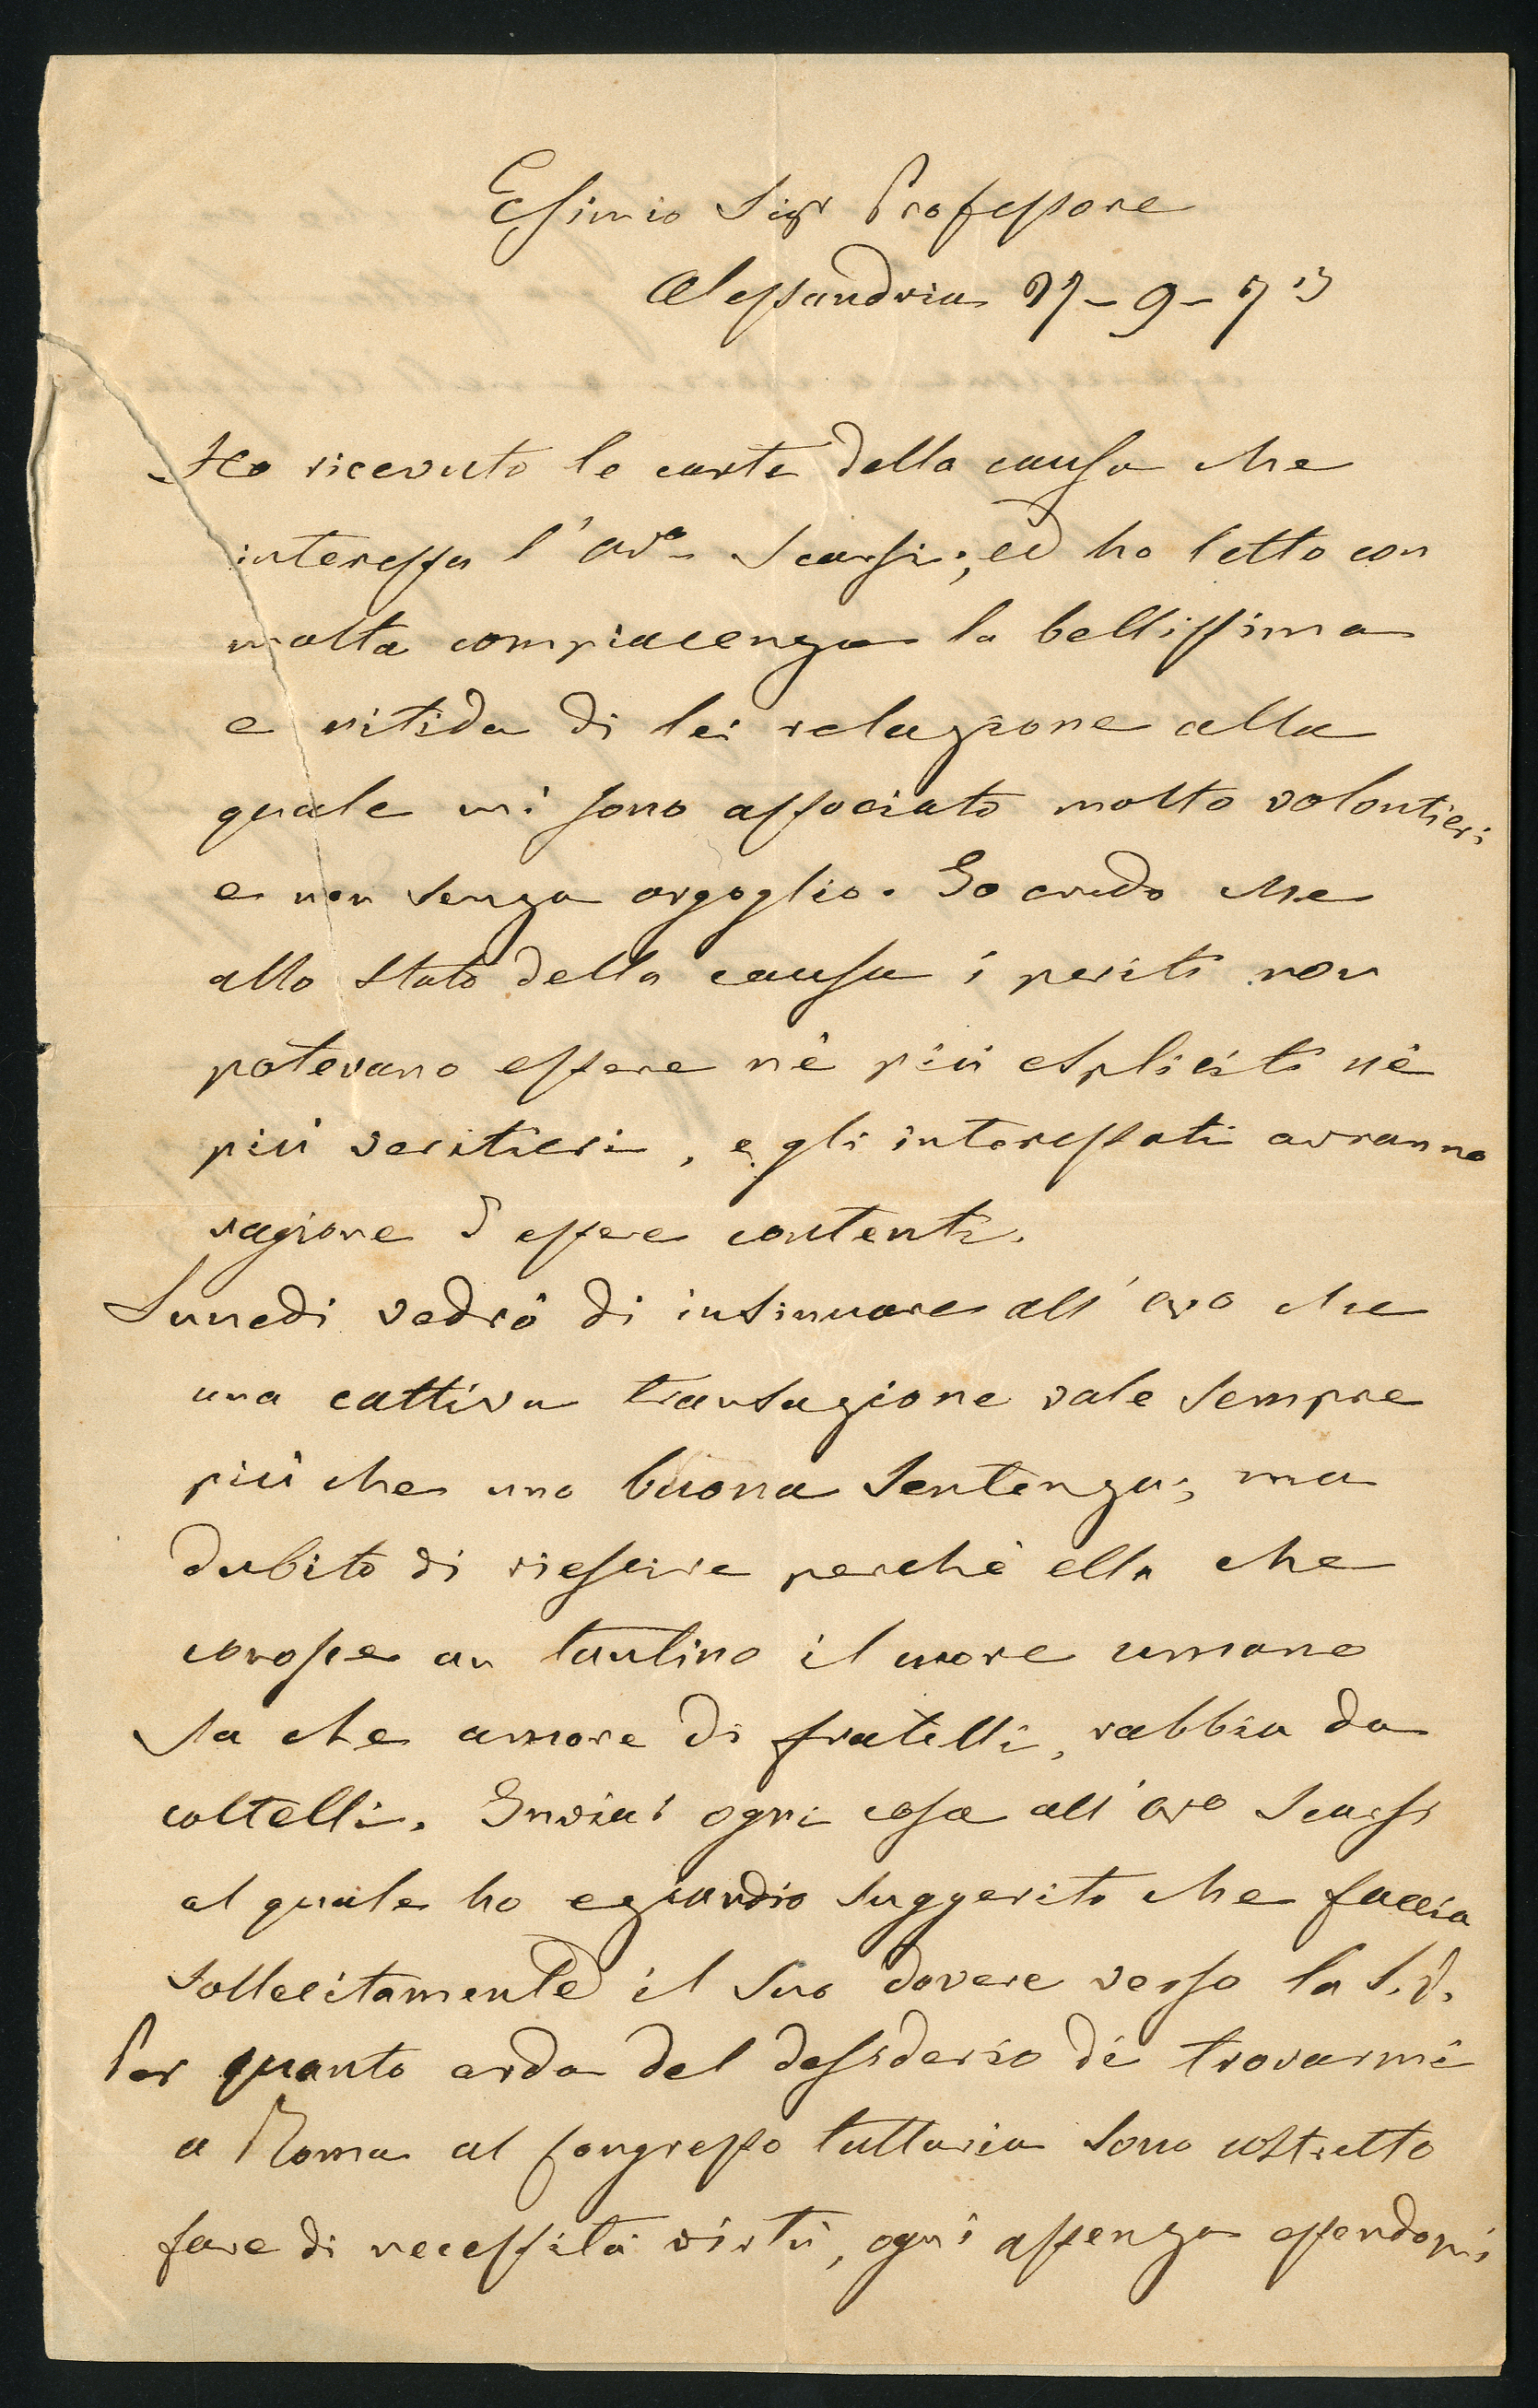 Esimio Sigr Professore
Alessandria 27-9-73
Ho ricevuto le carte della causa che
interessa l'avo Scarsi; ed ho letto con
molta compiacenza la bellissima
e nitida di lei relazione alla
quale mi sono associato molto volontieri
e non senza orgoglio. Io credo che
allo stato della causa i periti non
potevano essere nè più espliciti nè
più veritieri, e gli interessati avranno
ragione d essere contenti.
Lunedi vedrò di insinuare all'avo che
una cattiva transazione vale sempre
più che una buona sentenza; ma
dubito di riescire perchè ella che
conosce un tantino il cuore umano
sa che amore di fratelli, rabbia da
coltelli. Inviai ogni cosa all'avo Scarsi
al quale ho eziandio suggerito che faccia
sollecitamente il suo dovere verso la S.V.
Per quanto arda del desiderio di trovarmi
a Roma al Congresso tuttavia sono costretto
fare di necessità virtù, ogni assenza essendomi